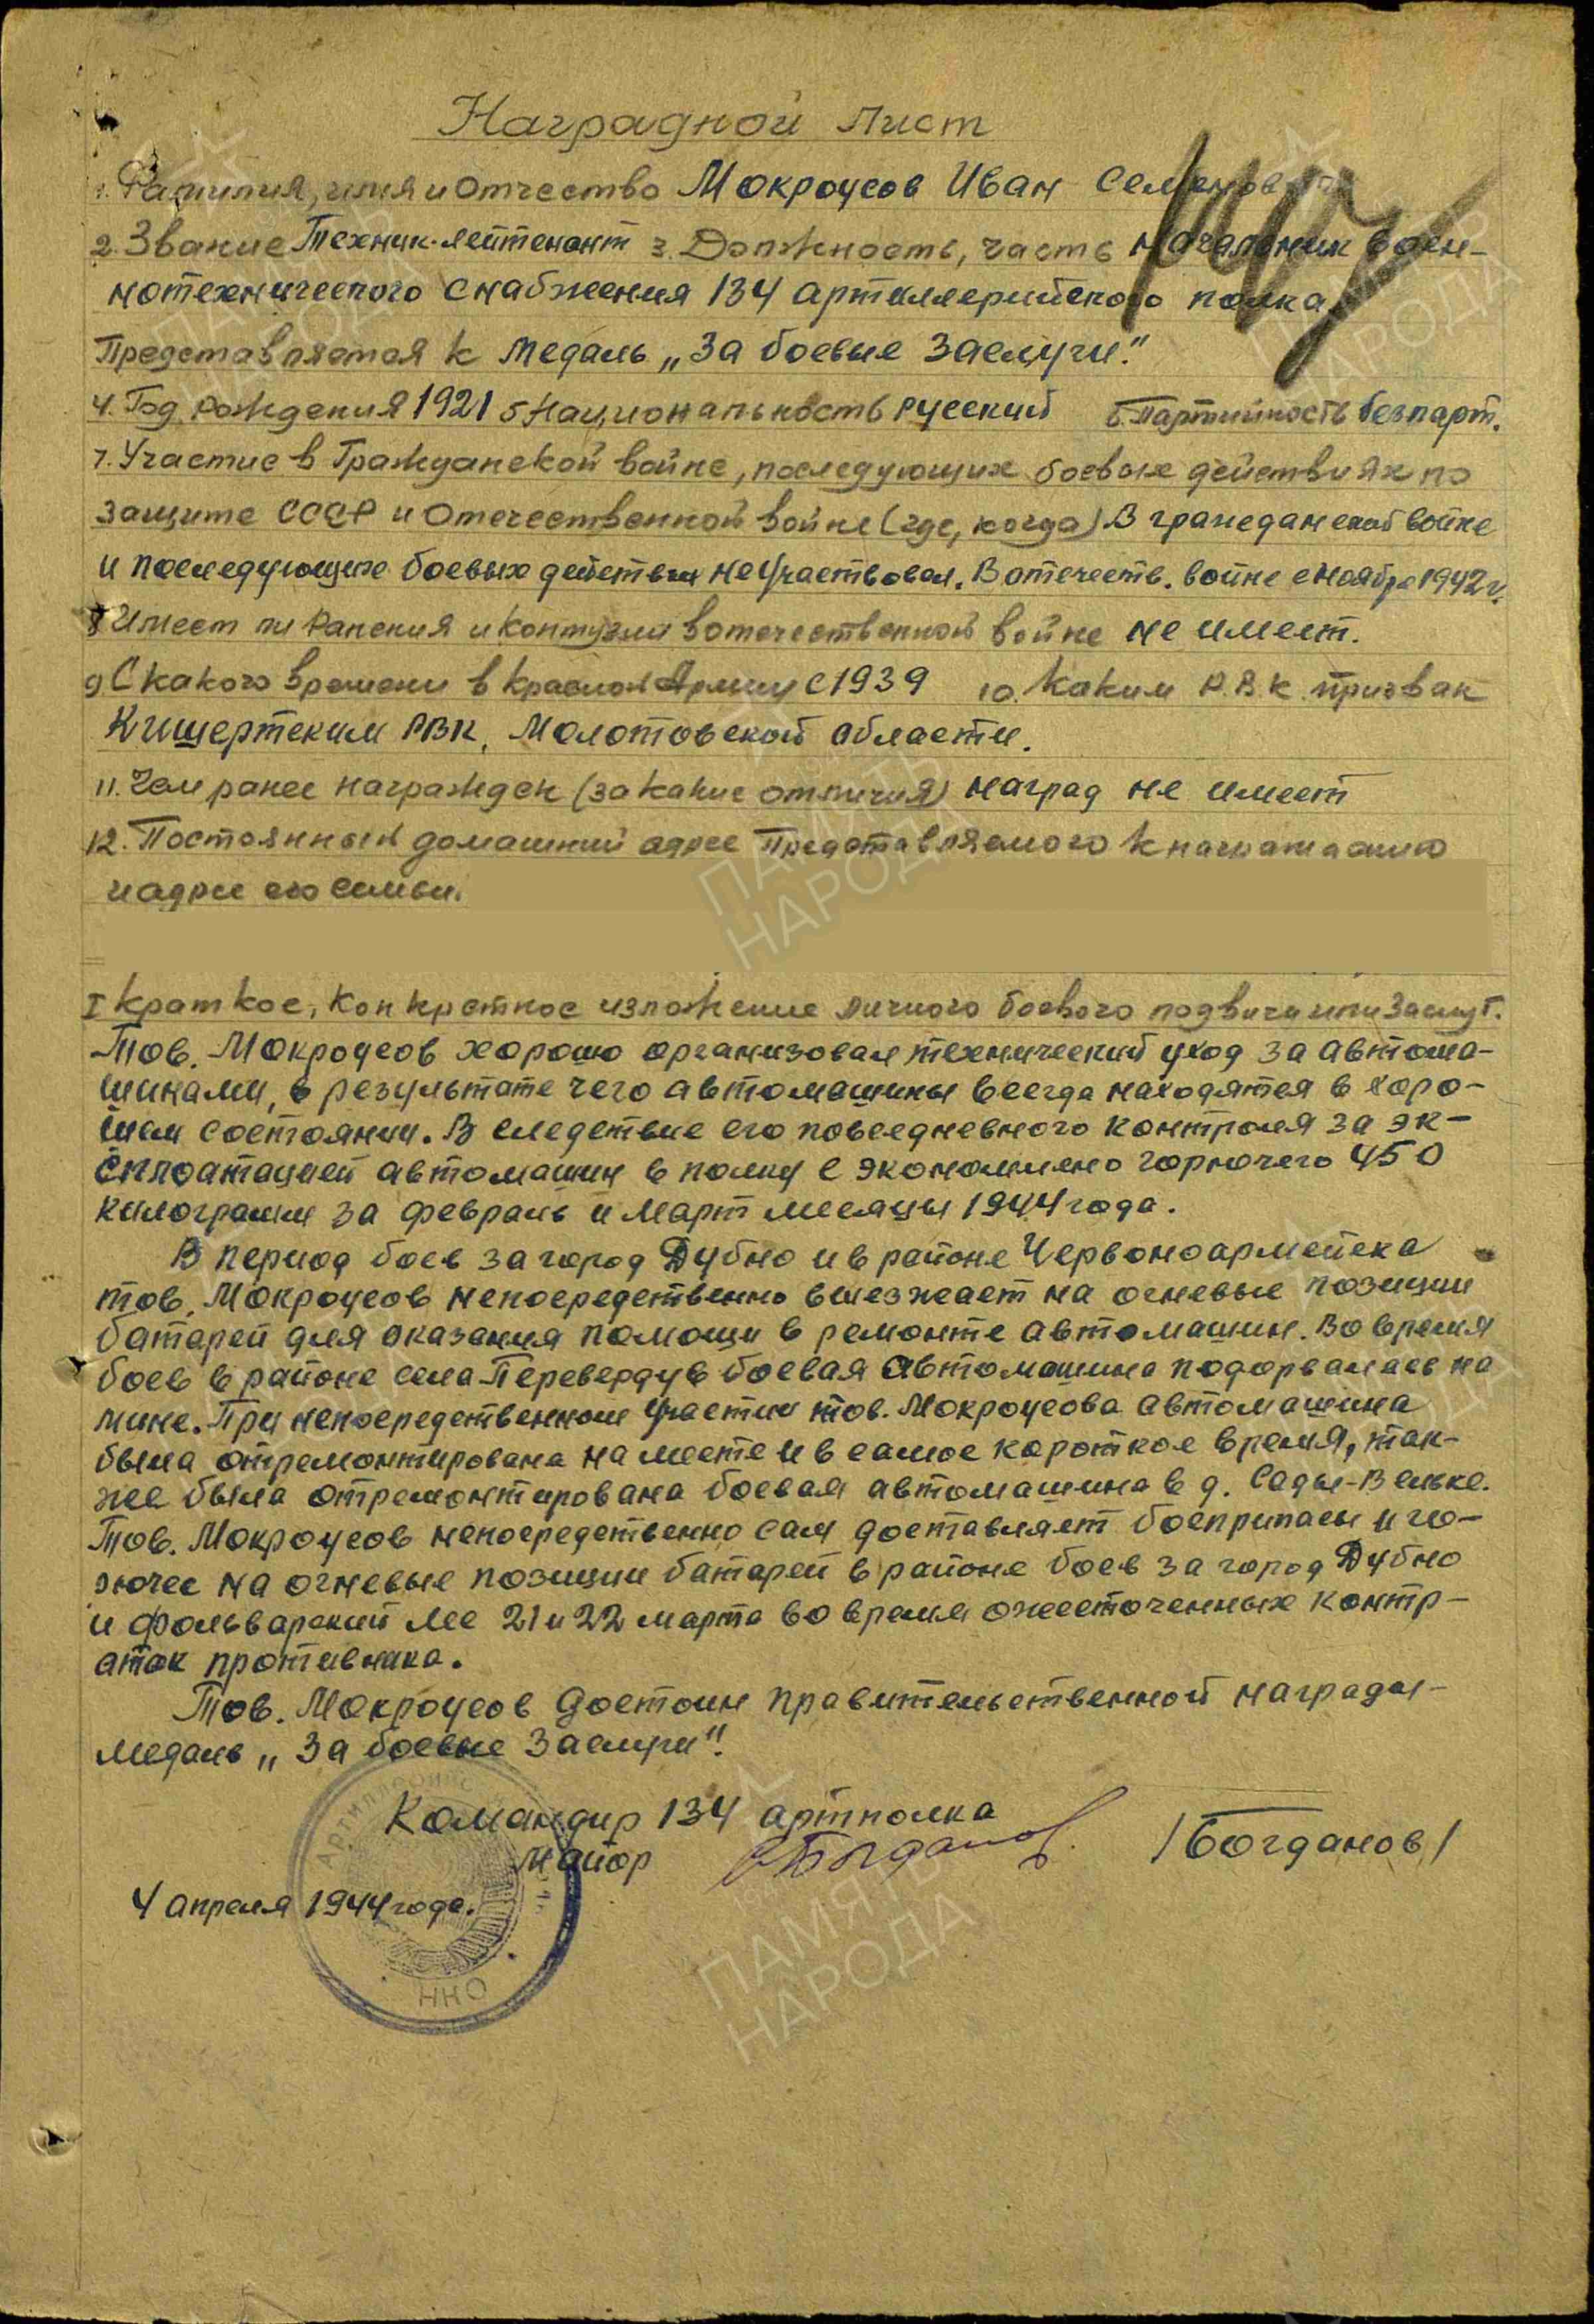 Наградной лист
1. Фамилия, имя и отчество Мокроусов Иван Семенович
2. Звание Техник-лейтенант 3. Должность, часть начальник воен-
нотехнического снабжения 134 артиллерийского полка
Представляется к медаль „За боевые заслуги".
4. Год рождения 1921 5 Национальность русский 6. Партийность безпарт.
7. Участие в Гражданской войне, последующих боевых действиях по
защите СССР и Отечественной войне (где, когда) В гражданской войне
и последующих боевых действиях не участвовал. В отечеств. войне с ноября 1942 г.
8 Имеет ли ранения и контузии в отечественной войне не имеет.
9 С какого времени в Красной Армии с 1939 10. Каким Р.В.К. призван
Кишертским РВК, Молотовской области.
11. Чем ранее награжден (за какие отличия) наград не имеет
12. Постоянный домашний адрес Представляемого к награждению
и адрес его семьи.
I Краткое, конкретное изложение личного боевого подвига или заслуг.
Тов. Мокроусов хорошо организовал технический уход за автома-
шинами, в результате чего автомашины всегда находятся в хоро-
шем состоянии. В следствие его повседневного контроля за эк-
сплоатацией автомашин в полку сэкономлено горючего 450
килограмм за февраль и март месяцы 1944 года.
В период боев за город Дубно и в районе Червоноармейска
тов. Мокроусов непосредственно выезжает на огневые позиции
батарей для оказания помощи в ремонте автомашин. Во время
боев в районе села Перевердув боевая автомашина подорвалась на
мине. При непосредственном участии тов. Мокроусова автомашина
была отремонтирована на месте и в самое короткое время, так-
же была отремонтирована боевая автомашина в д. Сады-Вельке.
Тов. Мокроусов непосредственно сам доставляет боеприпасы и го-
рючее на огневые позиции батарей в районе боев за город Дубно
и фольварский лес 21 и 22 марта во время ожесточенных контр-
атак противника.
Тов. Мокроусов достоин правительственной награды-
медаль „За боевые заслуги".
Командир 134 артполка
Майор Богданов /Богданов/
4 апреля 1944 года.
АРТИЛЛЕРИЙС
ПАМЯТЬ
НАРОДА